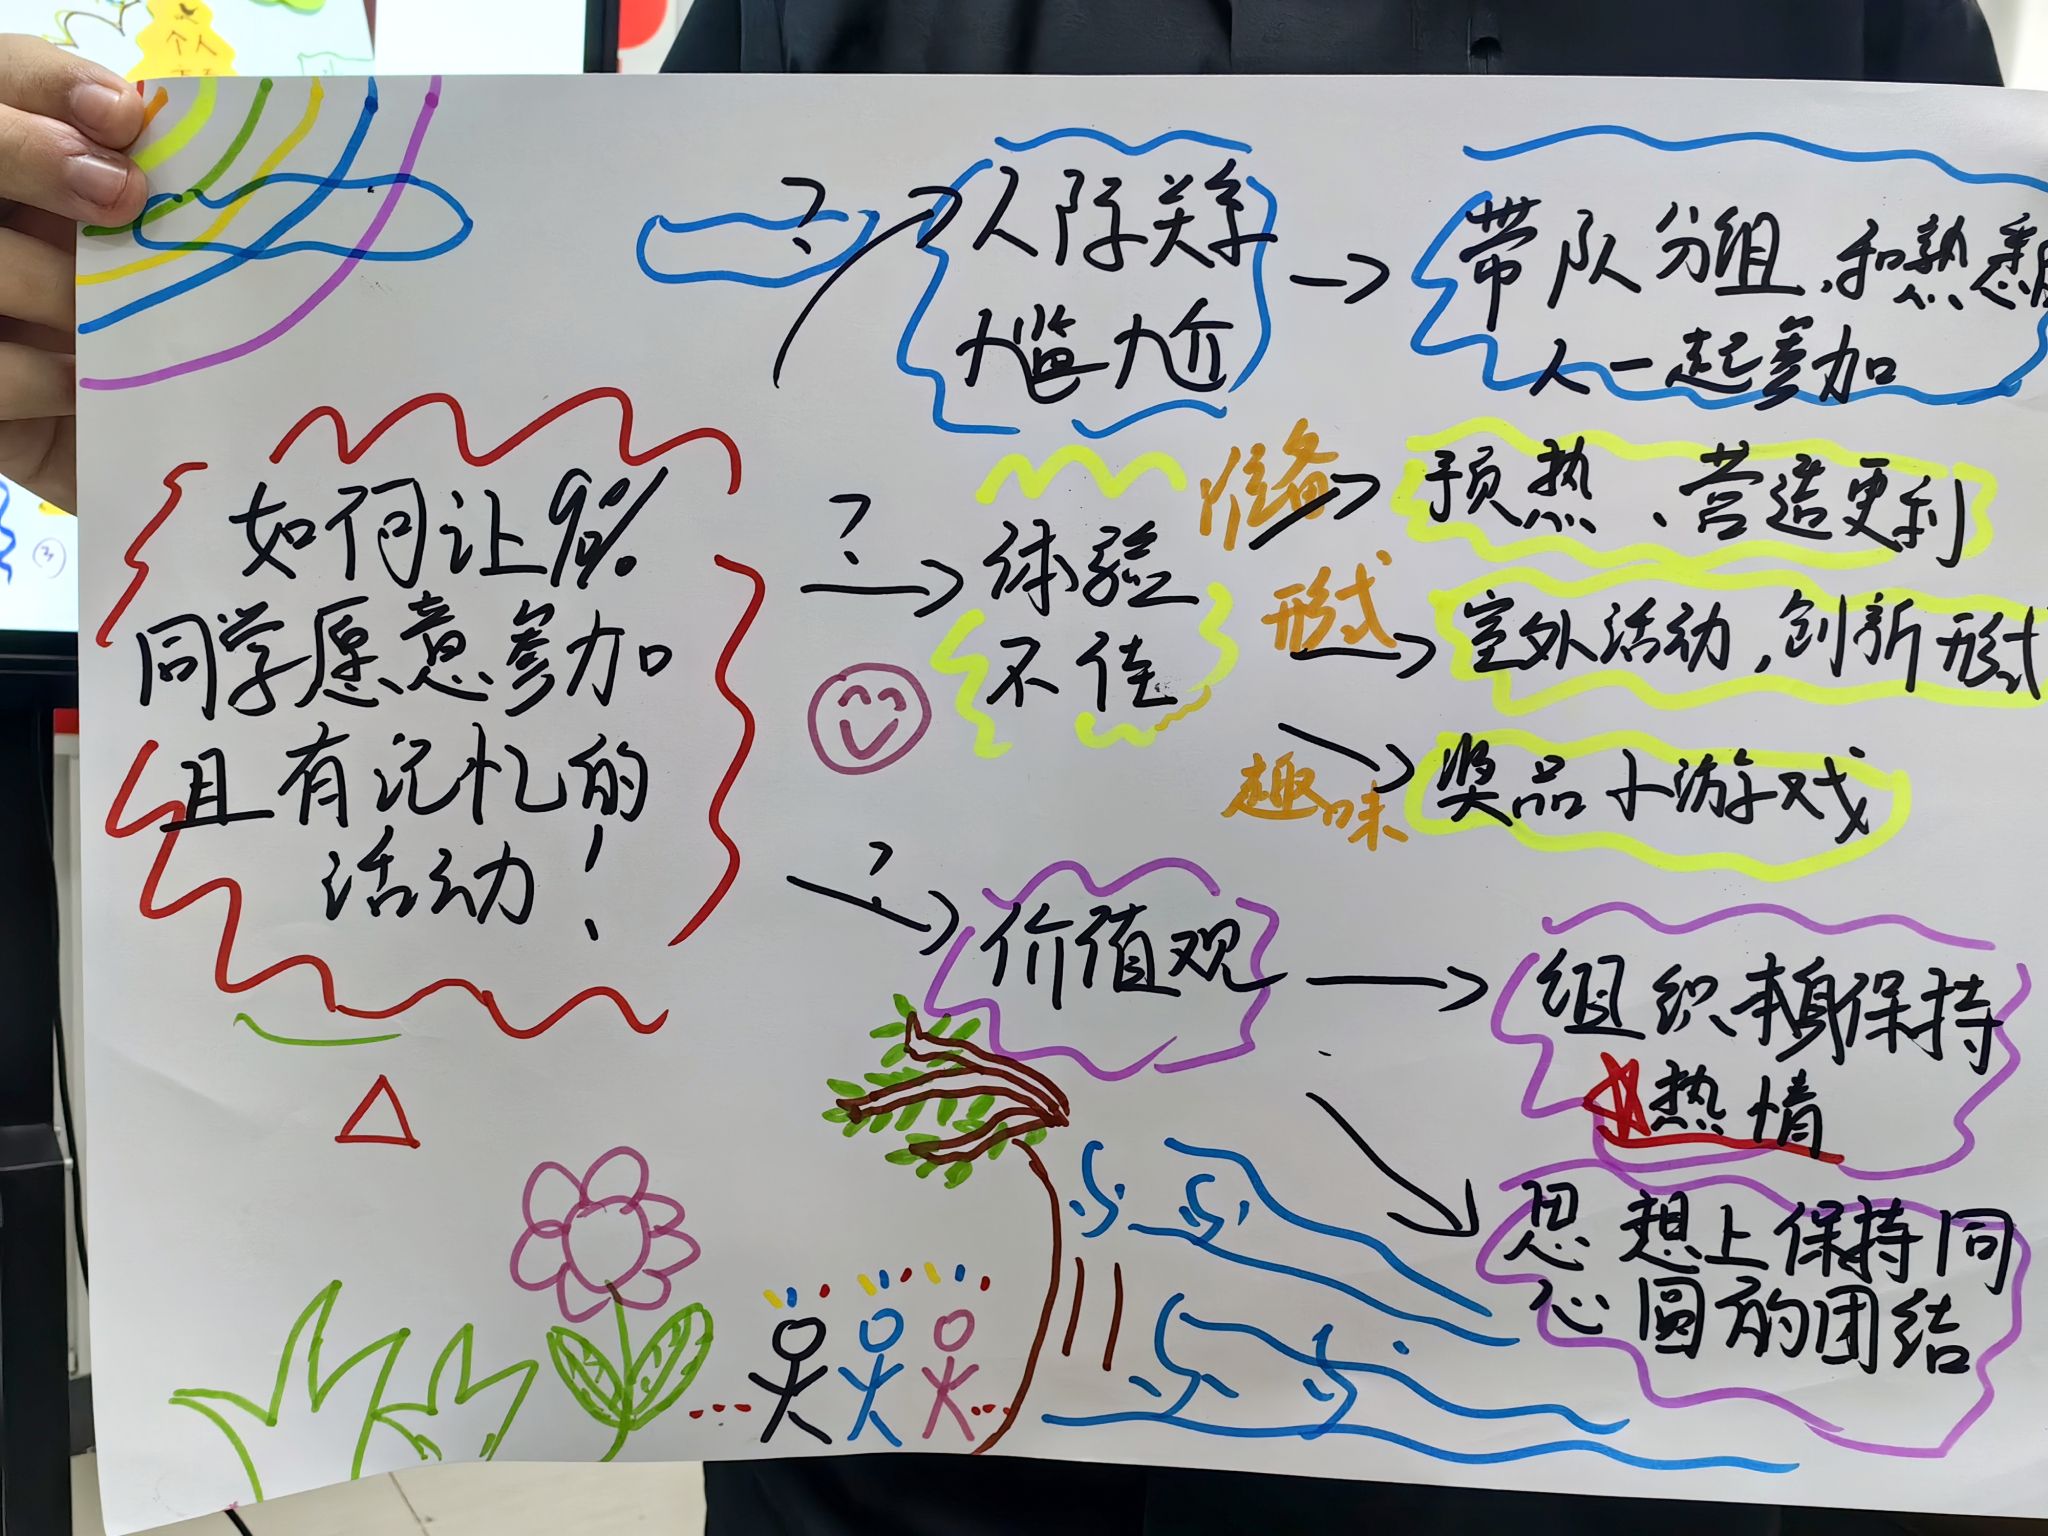 个人
人际关系
尴尬
带队分组,和熟悉
人一起参加
如何让90%
同学愿意参加
且有记忆的
活动!
?
?
?
体验
不佳
准备
预热、营造更利
形式
室外活动,创新形式
趣味
奖品小游戏
价值观
组织本身保持
热情
思想上保持同
心圆的团结